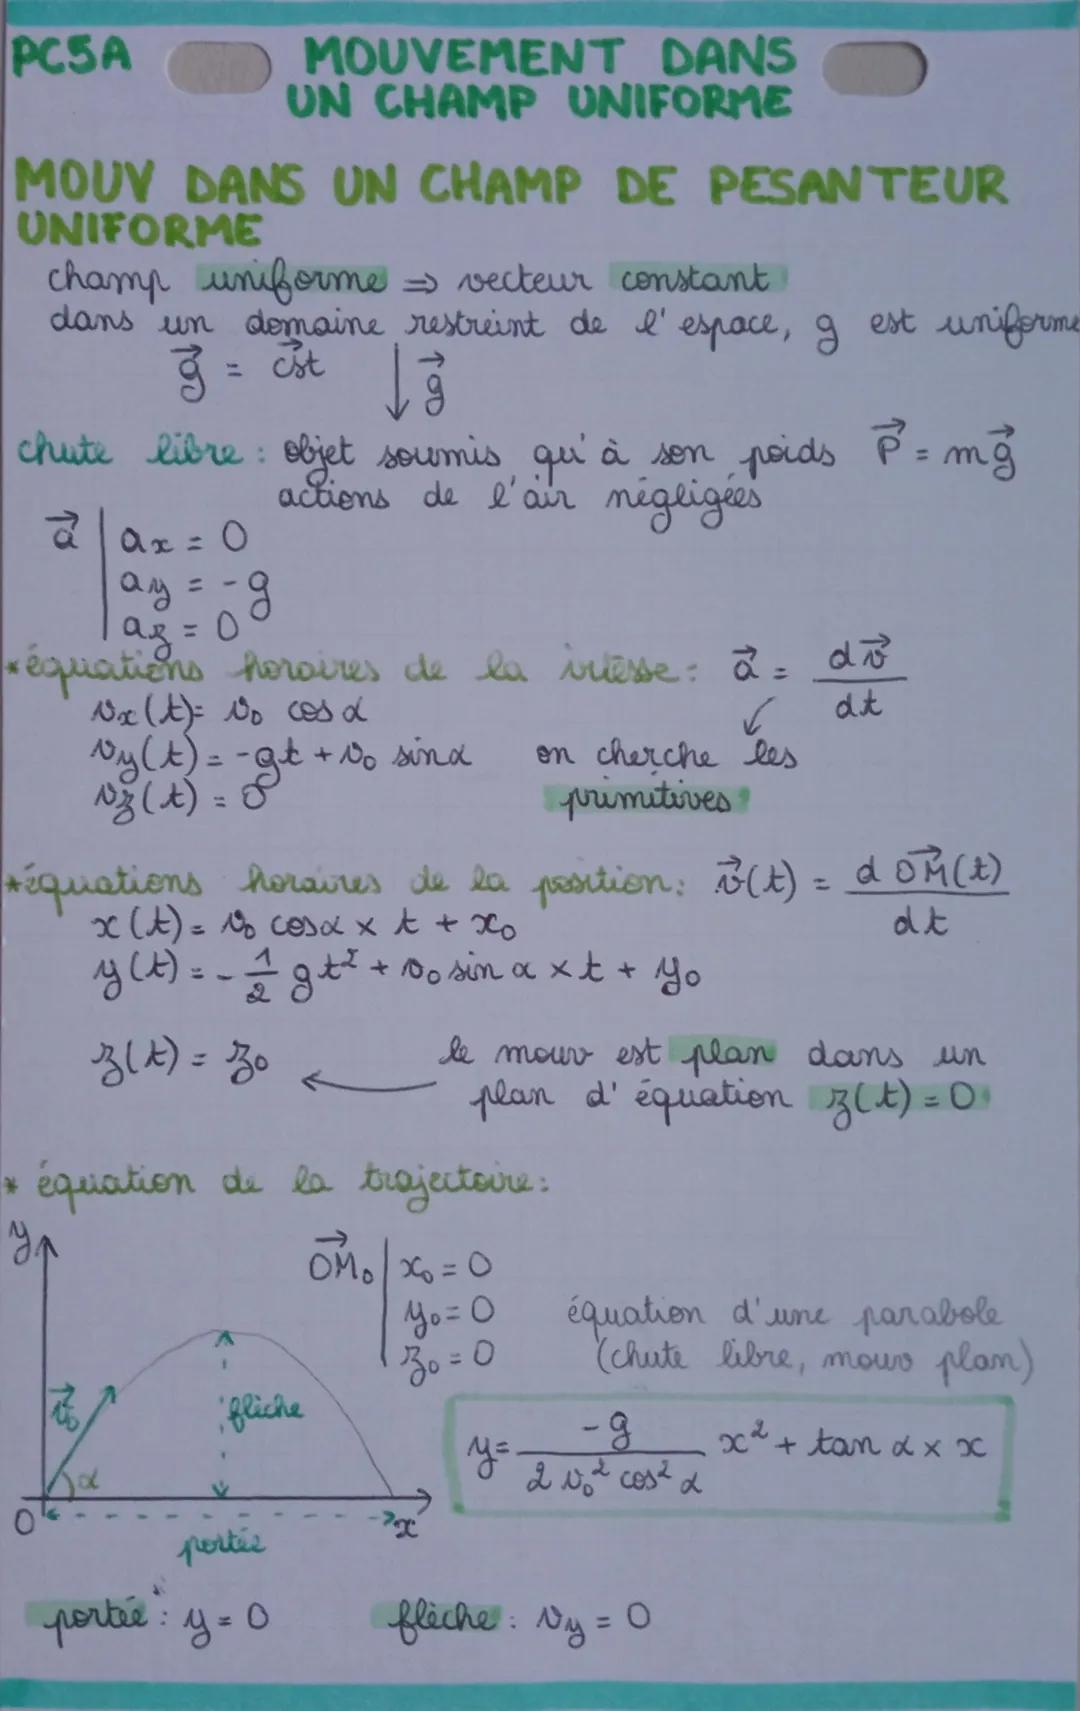 PC5A
MOUVEMENT DANS
UN CHAMP UNIFORME
MOUV DANS UN CHAMP DE PESANTEUR
UNIFORME
champ uniforme ⇒ vecteur constant
dans un domaine restreint de l'espace, g est uniforme
g⃗ = cst⃗ ↓ g⃗
chute libre : objet soumis qu'à son poids P⃗ = mg⃗
actions de l'air négligées
a⃗ | ax = 0
ay = -g
az = 0
*équations horaires de la vitesse : a⃗ = dv⃗/dt
vx(t) = v₀ cos α
vy(t) = -gt + v₀ sin α on cherche les
vz(t) = 0 primitives
*équations horaires de la position : v⃗(t) = d OM⃗(t)/dt
x(t) = v₀ cos α × t + x₀
y(t) = - 1/2 gt² + v₀ sin α × t + y₀
z(t) = z₀ ← le mouv est plan dans un
plan d'équation z(t) = 0
* équation de la trajectoire :
y
OM₀⃗ | x₀ = 0
y₀ = 0 équation d'une parabole
z₀ = 0 (chute libre, mouv plan)
v₀⃗
flèche
y = -g/(2 v₀² cos² α) x² + tan α × x
α
O
x
portée
portée : y = 0 flèche : vy = 0